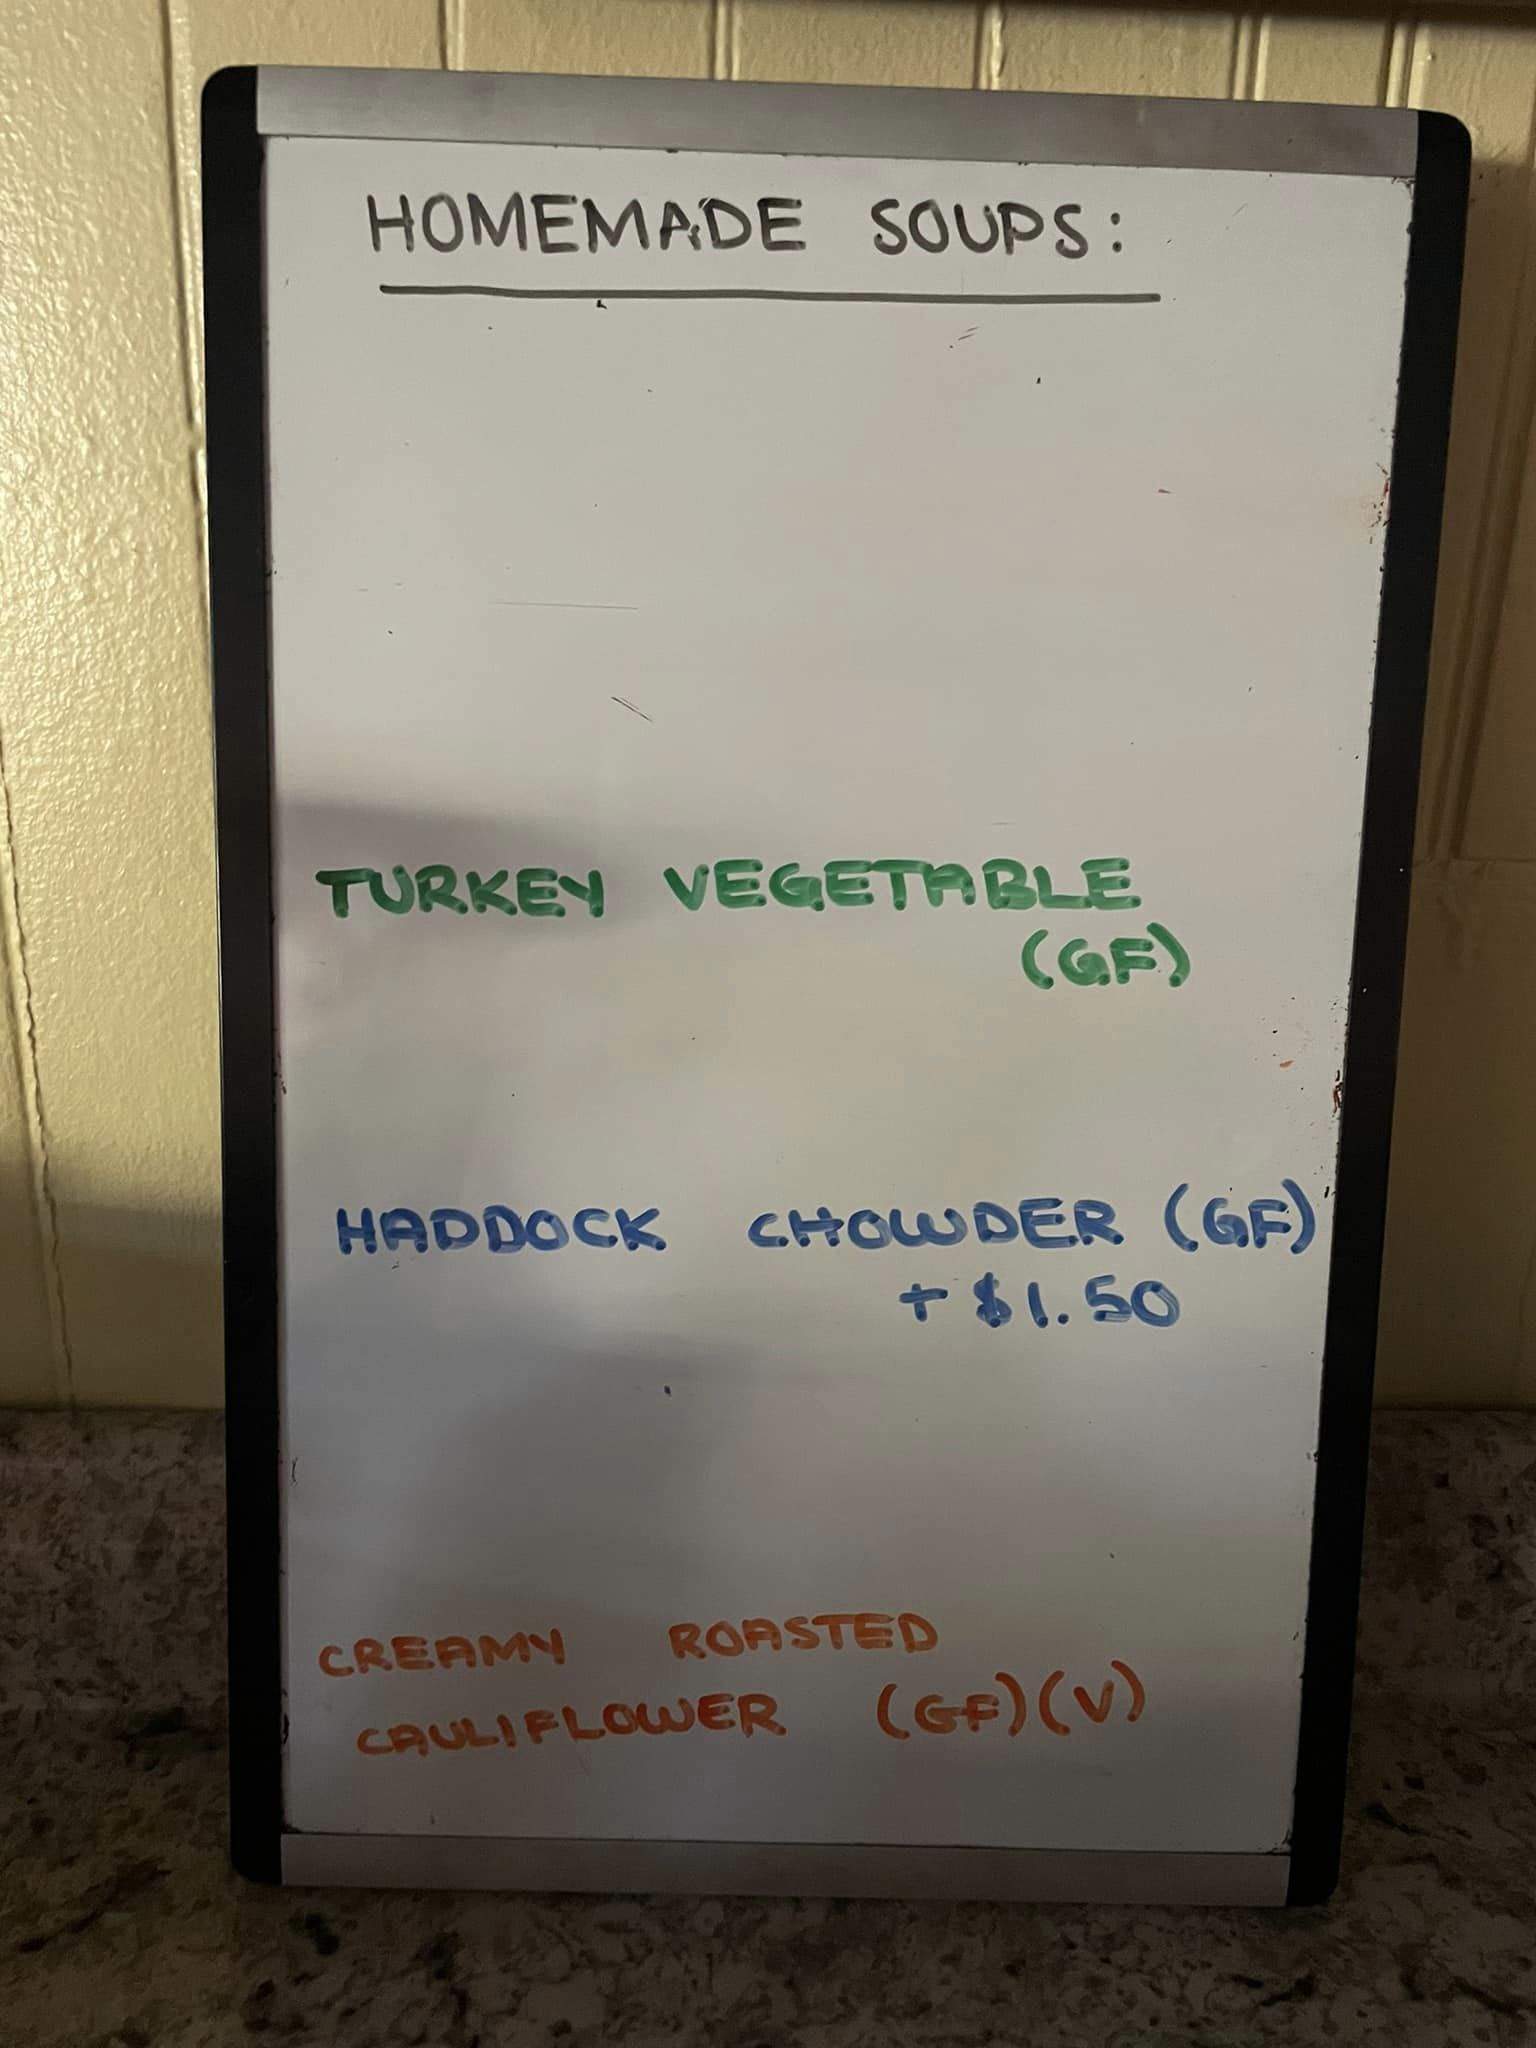 HOMEMADE SOUPS:
TURKEY VEGETABLE
(GF)
HADDOCK CHOWDER (GF)
+ $1.50
CREAMY ROASTED
CAULIFLOWER (GF)(V)